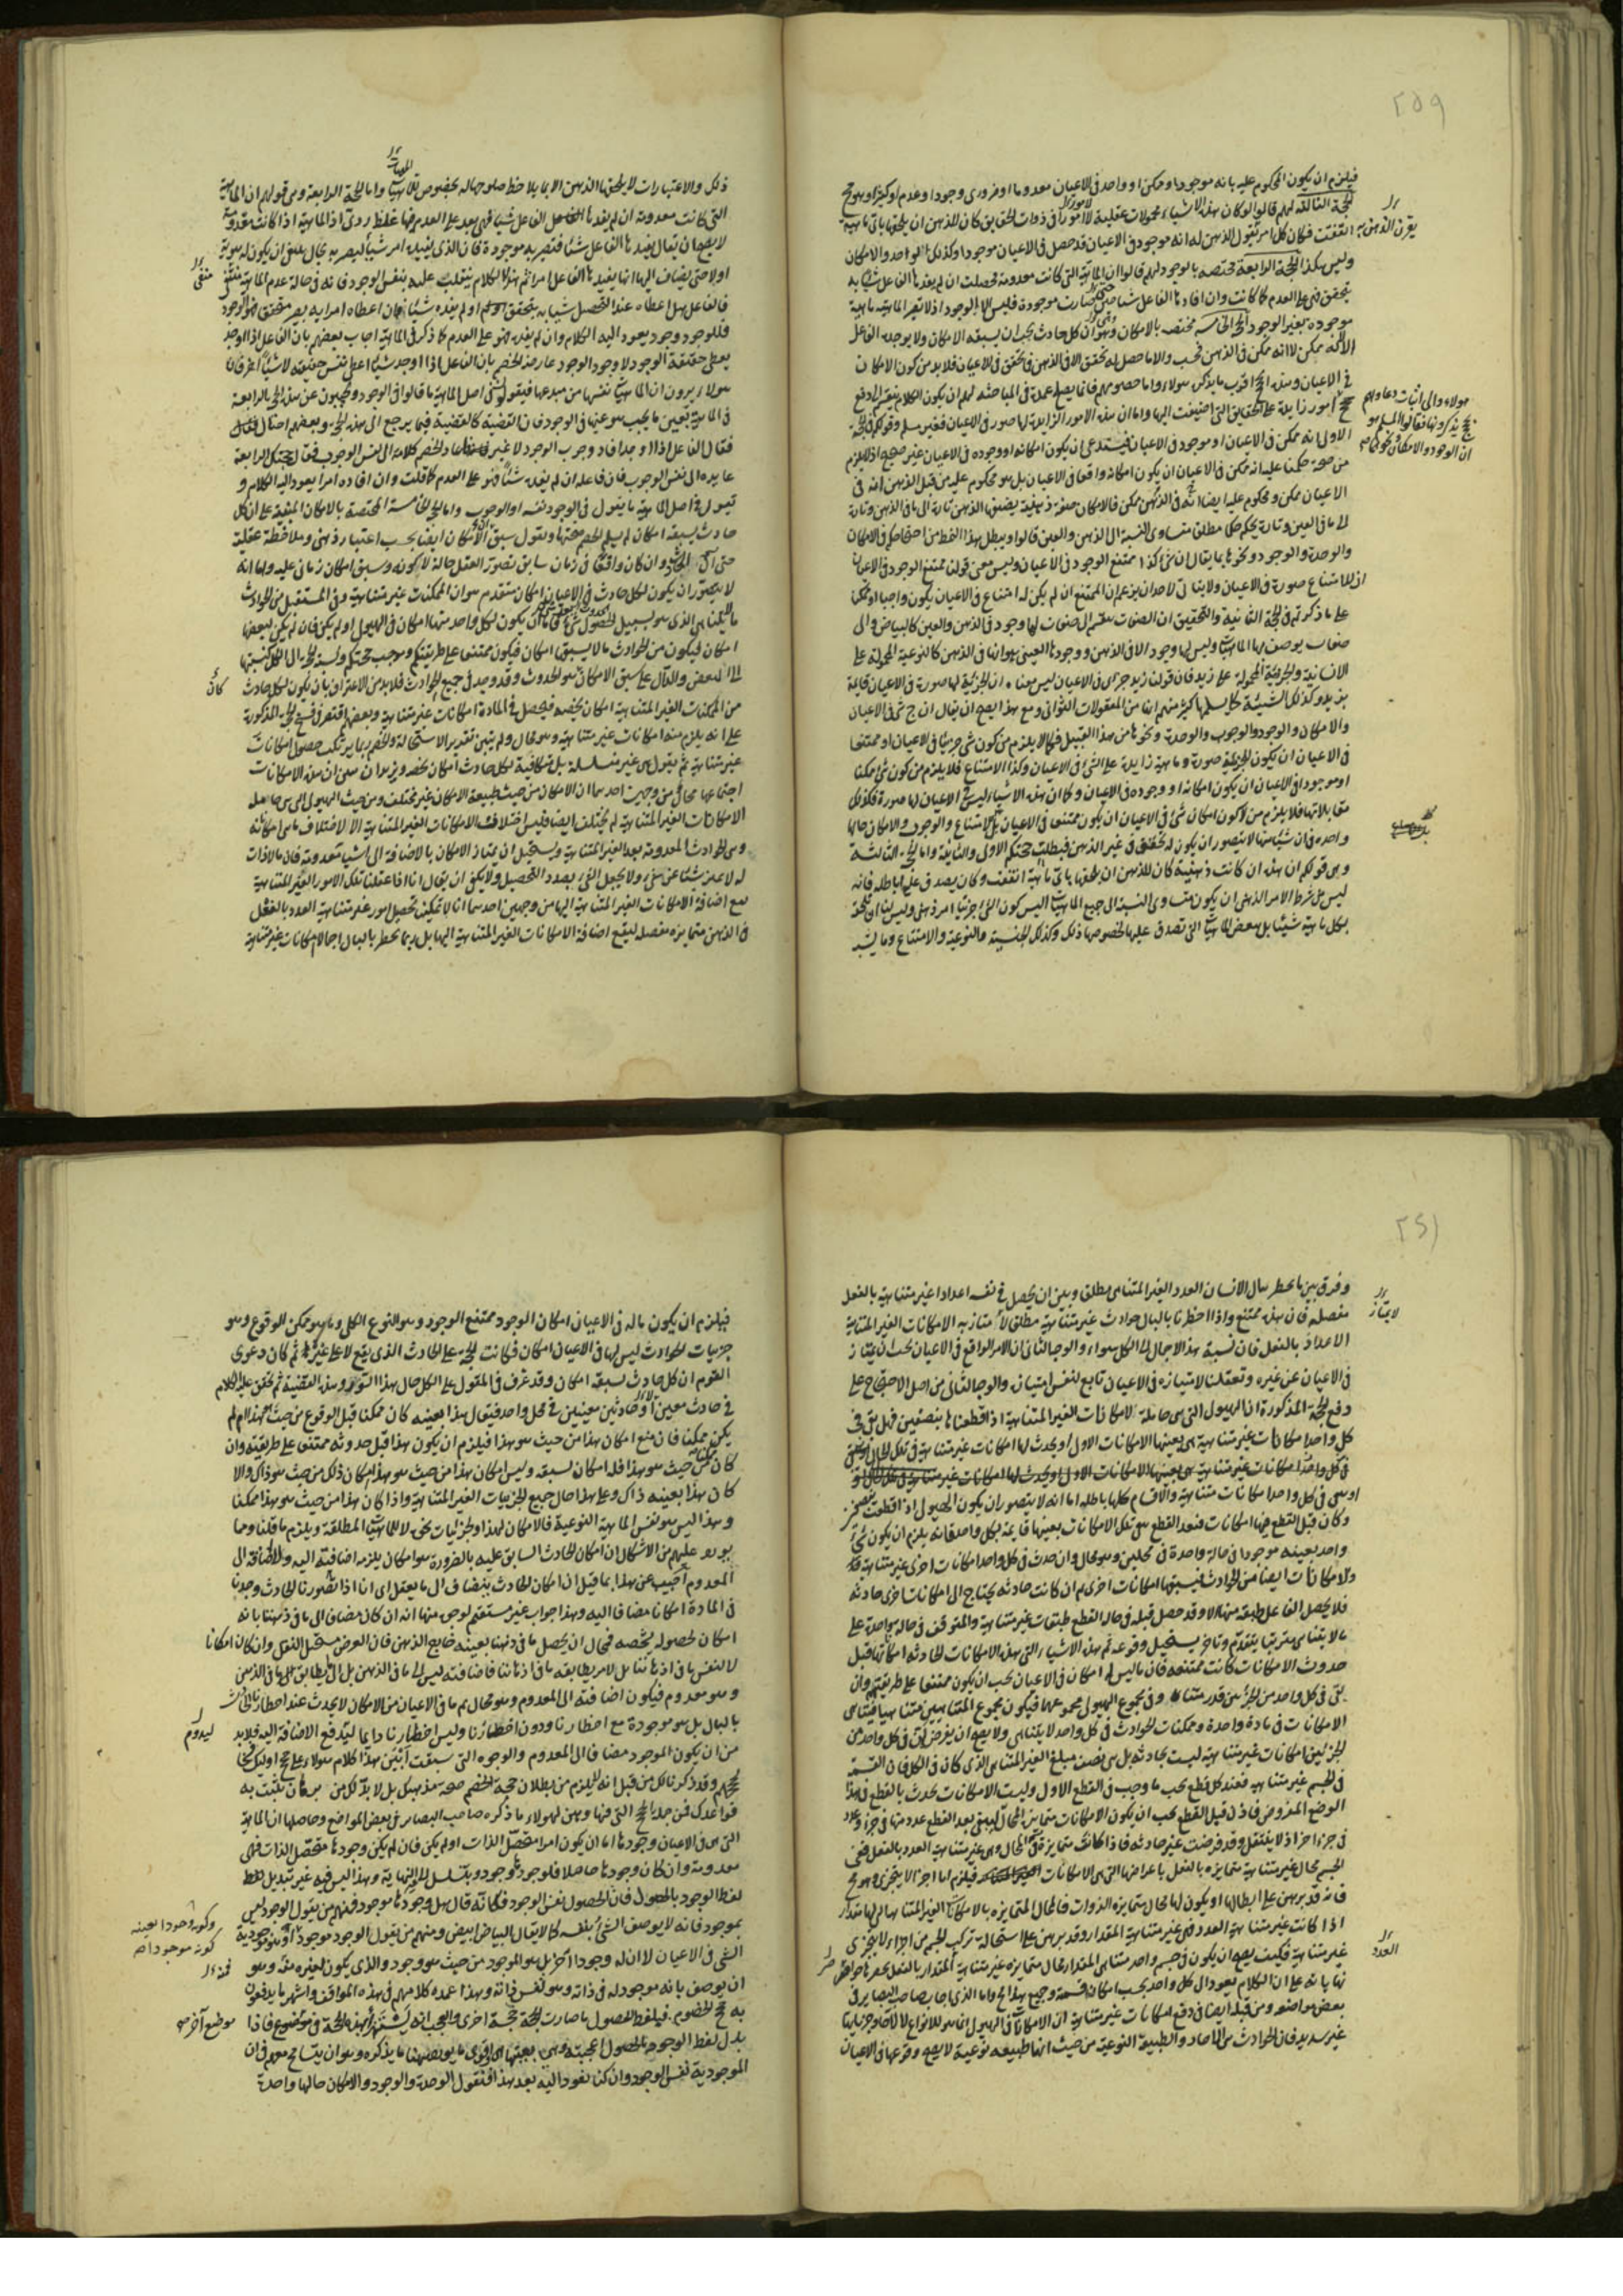 ٢٥٩
فيلزم ان يكون المحكوم عليه بانه موجود او ممكن او واحد فى الاعيان معدوما او ضرورى وجود او عدم او كثيرا وهو مح
الحجة الثالثة لهم قالوا لو كان هذه الاشياء محمولات عقلية لا امورا فى ذوات الحقايق كان للذهن ان يلحقها باى ماهية
اتفقت فكان كل امر يقول الذهن له انه موجود فى الاعيان قد حصل فى الاعيان موجودا وكذلك الواحد والامكان
وليس هكذا الحجة الرابعة مختصة بالوجود لهم قالوا ان الماهية التى كانت معدومة فحصلت ان لم يفدها الفاعل شيئا به
يتحقق فهى على العدم كما كانت وان افادها الفاعل شيئا حتى صارت موجودة فليس الا الوجود اذ لا تصير الماهية ماهية
موجودة بغير الوجود الحجة الخامسة مختصة بالامكان وهو ان كل حادث يجب ان يسبقه الامكان ولا يوجده الفاعل
الا لانه ممكن لا انه ممكن فى الذهن فحسب والا ما حصل له تحقق الا فى الذهن فيتحقق فى الاعيان فلا بد من كون الامكان
فى الاعيان وهذه الحجج اقرب ما يذكره هؤلاء واما خصومهم فانما يصلح عمدة فى المباحثة لهم ان يكون الكلام
امور زايدة على الحقايق التى اضيفت اليها واما ان هذه الامور الزايدة لها صور فى الاعيان فغير مسلم وقولكم فى الحجة
الاولى انه ممكن فى الاعيان او موجود فى الاعيان فيستدعى ان يكون امكانه او وجوده فى الاعيان غير صحيح اذ لا يلزم
من صحة حكمنا عليه انه ممكن فى الاعيان ان يكون امكانه واقعا فى الاعيان بل هو محكوم عليه من قبل الذهن انه فى
الاعيان ممكن ومحكوم عليه ايضا انه فى الذهن ممكن فالامكان صفة ذهنية يضيفها الذهن تارة الى ما فى الذهن وتارة
الى ما فى العين وتارة يحكم حكما مطلقا متساوى النسبة الى الذهن والعين قالوا ويبطل بهذا النمط من احتجاجكم فى الامكان
والوحدة والوجود ونحوها بما يقال ان شئ كذا ممتنع الوجود فى الاعيان وليس معنى قولنا ممتنع الوجود فى الاعيان
ان للامتناع صورة فى الاعيان ولا يتاتى لاحد ان يزعم ان الممتنع ان لم يكن له امتناع فى الاعيان يكون واجبا او ممكنا
على ما ذكرتم فى الحجة الثانية والتحقيق ان الصفات تنقسم الى صفات لها وجود فى الذهن والعين كالبياض والى
صفات يوصف بها الماهيات وليس لها وجود الا فى الذهن ووجودها العينى هو انها فى الذهن كالنوعية المحمولة على
الانسانية والجزئية المحمولة على زيد فان قولنا زيد جزئى فى الاعيان ليس معناه ان الجزئية لها صورة فى الاعيان قائمة
بزيد وكذلك الشيئية كما يسلمها كثير منهم انها من المعقولات الثوانى ومع هذا يصح ان يقال ان ج شئ فى الاعيان
والامكان والوجود والوجوب والوحدة ونحوها من هذا القبيل فكما لا يلزم من كون شئ جزئيا فى الاعيان او ممتنعا
فى الاعيان ان يكون للجزئية صورة وماهية زايدة على الشئ فى الاعيان وكذا الامتناع فلا يلزم من كون شئ ممكنا
او موجودا فى الاعيان ان يكون امكانه او وجوده فى الاعيان وكما ان هذه الاشياء ليس فى الاعيان لها صورة فكذلك
مقابلاتها فلا يلزم من لا كون امكان شئ فى الاعيان ان يكون ممتنعا فى الاعيان بل الامتناع والوجوب والامكان حالها
واحدة فان شيئا منها لا يتصور ان يكون له تحقق فى غير الذهن فبطلت حجتكم الاولى والثانية واما الحجة الثالثة
وهى قولكم ان هذه ان كانت ذهنية كان للذهن ان يلحقها باى ماهية اتفقت وكان يصدق عليها باطلة فانه
ليس من شرط الامر الذهنى ان يكون متساوى النسبة الى جميع الماهيات اليس كون الشئ جزئيا امر ذهنى وليس لنا ان نلحقه
بكل ماهية شيئا بل ببعض الماهيات التى تصدق عليها لخصوصها ذلك وكذلك الجنسية والنوعية والامتناع وما يشبه
يقرن الذهن به
هؤلاء والى اثبات دعاويهم
ان الوجود والامكان ونحوهما
ذلك والاعتبارات لا يلحقها الذهن الا بما يلاحظ صلوحها له بخصوص الماهيات واما الحجة الرابعة وهى قولهم ان الماهية
التى كانت معدومة ان لم يفدها الفاعل شيئا فهى بعد على العدم فيها غلط ردئ اذ الماهية اذا كانت معدومة
لا يصح ان يقال يفيدها الفاعل شيئا فتصير به موجودة فان الذى يفيده امر شيئا ليصير به بحال ينبغى ان يكون له هوية
اولا حتى يضاف اليها انها يفيدها الفاعل امرا ثم هذا الكلام ينقلب عليه بنفس الوجود فانه فى حالة عدم الماهية منتفى
فالفاعل هل اعطاه عند التحصل شيئا به يتحقق او لم يفده شيئا فان اعطاه امرا به يصير متحققا فهو الوجود
فللوجود وجود يعود اليه الكلام وان لم يفد فهو على العدم كما ذكر فى الماهية اجاب بعضهم بان الفاعل اذا اوجد
يعطى حقيقة الوجود لا وجود الوجود عارضه الخصم بان الفاعل اذا اوجد شيئا اعطى نفس حقيقته لا شيئا آخر فان
هؤلاء يرون ان الماهيات نفسها من مبدعها فيقولون فى اصل الماهية ما قالوا فى الوجود ويجيبون عن هذه الحجة الرابعة
فقال الفاعل اذا اوجد افاد وجوب الوجود لا غير فعاد الخصم كلامه الى نفس الوجوب فقال حجتكم الرابعة
عايدة الى نفس الوجوب فان فاعله ان لم يفده شيئا فهو على العدم كما قلت وان افاده امرا يعود اليه الكلام و
نقول فى اصل الماهية ما يقول فى الوجود نفسه او الوجوب واما الحجة الخامسة المختصة بالامكان المبنية على ان كل
حادث يسبقه امكان لم يسلم الخصم صحتها ويقول سبق الامكان ايضا بحسب اعتبار ذهنى وملاحظة عقلية
لا يتصور ان يكون لكل حادث فى الاعيان امكان متقدم هو ان الممكنات غير متناهية وفى المستقبل من الحوادث
امكان فيكون من الحوادث ما لا يسبقها امكان فيكون ممتنعا على طريقتكم
من الممكنات الغير المتناهية امكان يخصه فيحصل فى المادة امكانات غير متناهية وبعضهم اقتصر فى فسخ الحجة المذكورة
على انه يلزم منه امكانات غير متناهية وهو محال ولم يتبين تقدير الاستحالة والخصم ربما يرتكب حصول امكانات
غير متناهية ثم يقول هى غير متسلسلة بل متكافية لكل حادث امكان يخصه ويزيد ان هذه الامكانات
اجتماعها محال من وجهين احدهما ان الامكان من حيث طبيعة الامكان غير مختلف ومن حيث الهيولى التى هى حاملة
الامكانات الغير المتناهية لم يختلف ايضا فليس اختلاف الامكانات الغير المتناهية الا لاختلاف ما هى امكاناته
وهى الحوادث المعدومة بعد الغير المتناهية ويستحيل ان يمتاز الامكان بالاضافة الى اشياء معدومة فان ما لا ذات
له لا يميز شيئا عن شئ ولا يجعل الشئ بصدد التحصيل ولا يكفى ان يقال انا اذا عقلنا تلك الامور الغير المتناهية
مع اضافة الامكانات الغير المتناهية اليها من وجهين احدهما انا لا يمكننا تحصيل امور غير متناهية العدد بالفعل
فى الذهن متمايزة مفصلة ليقع اضافة الامكانات الغير المتناهية اليها بل ربما نخطر بالبال اجمالا امكانات غير متناهية
كان
٢٦١
وفرق بين ما يخطر ببال الانسان العدد الغير المتناهى مطلقا وبين ان يحصل فى نفسه اعدادا غير متناهية بالفعل
مفصلة فان هذه ممتنع واذا اخطرنا بالبال حوادث غير متناهية مطلقا لا متناز به الامكانات الغير المتناهية
الاعداد بالفعل فان نسبة هذا الاجمال الى الكل سواء والوجه الثانى ان الامر الواقع فى الاعيان يجب ان يمتاز
فى الاعيان عن غيره وتعقلنا لامتيازه فى الاعيان تابع لنفس امتيازه والوجه الثانى من اصل الاحتجاج على
دفع الحجة المذكورة ان الهيولى التى هى حاملة لامكانات الغير المتناهية اذا قطعناها بنصفين فهل يبقى فى
كل واحد امكانات غير متناهية هى بعينها الامكانات الاول او يحدث لها امكانات غير متناهية فى تلك الحال
او يبقى فى كل واحد امكانات متناهية والاقسام كلها باطلة اما انه لا يتصور ان يكون الهيولى اذا قطعت بنصفين
وكان قبل القطع فيها امكانات فبعد القطع هى تلك الامكانات بعينها قايمة بكل واحد فانه يلزم ان يكون شئ
واحد بعينه موجودا فى حالة واحدة فى محلين وهو محال وان حدث فى كل واحد امكانات اخرى غير متناهية
والامكانات ايضا من الحوادث فيسبقها امكانات اخرى ثم ان كانت حادثة يحتاج الى امكانات اخرى حادثة
فلا يحصل الفاعل طبقة منها الا وقد حصل قبله فى حالة القطع طبقات غير متناهية والمتوقف فى حالة واحدة على
ما لا يتناهى مترتبا بتقدم وتاخر يستحيل وقوعه ثم هذه الاشياء التى هى هذه الامكانات الحادثة امكاناتها قبل
حدوث الامكانات كانت ممتنعة فان ما ليس له امكان فى الاعيان يجب ان يكون ممتنعا على طريقتهم وان
بقى فى كل واحد من الجزئين قدر متناه وفى مجموع الهيولى مجموعهما فيكون مجموع المتناهيين متناهيا فيتناهى
الامكانات فى مادة واحدة وممكنات الحوادث فى كل واحد لا يتناهى ولا يصح ان يفرض بقى فى كل واحد من
الجزئين امكانات غير متناهية ليست بحادثة بل هى نصف مبلغ الغير المتناهى الذى كان فى الكل فان القسمة
فى الجسم غير متناهية فعند كل قطع يجب ما وجب فى القطع الاول وليست الامكانات تحدث بالقطع فى هذا
الوضع المفروض فاذن قبل القطع يجب ان يكون الامكانات متمايزة المحال ليبقى بعد القطع عدد منها فى جزء وعدد
فى جزء آخر اذ لا ينتقل وقد فرضت غير حادثة فاذا كانت متمايزة المحال وهى غير متناهية العدد بالفعل ففى
الجسم محال غير متناهية متمايزة بالفعل باعراضها التى هى الامكانات فيلزم اما اجزاء لا يتجزى وهو مح
فانه قد برهن على ابطالها او يكون لها محال متمايزة الذوات فالمحال المتمايزة بالامكانات الغير المتناهية لها مقدار
اذا كانت غير متناهية العدد فهى غير متناهية المقدار وقد برهن على استحالة تركب الجسم من اجزاء لا يتجزى
غير متناهية فكيف يصح ان يكون فى جسم واحد متناهى المقدار محال متمايزة غير متناهية المقدار بالفعل
نهاية على ان الكلام يعود الى كل واحد بحسب امكان قسمة وجميع هذا الحجج واما الذى اجاب صاحب البصاير فى
بعض مواضعه ومن قبله ايضا فى دفع امكانات غير متناهية ان الامكانات فى الهيولى انما هو للانواع لا للآحاد وجزئياتها
غير سديد فان الحوادث هى الآحاد والطبيعة النوعية من حيث انها طبيعة نوعية لا يصح وقوعها فى الاعيان
لامتياز
العدد
فيلزم ان يكون ما له فى الاعيان امكان الوجود ممتنع الوجود وهو النوع الكلى وما هو ممكن الوقوع وهو
جزئيات الحوادث ليس لها فى الاعيان امكان فكانت الحجة على الحادث الذى يقع لا على غيره ثم كان دعوى
القوم ان كل حادث يسبقه امكان وقد عرف فى المقول على الكل حال هذا السور وهذه القضية ثم نحقق عليه الكلام
فى حادث معين او حادثين معينين فى محل واحد فيقول هذا بعينه كان ممكنا قبل الوقوع من حيث هو هذا ام لم
يكن ممكنا فان منع امكان هذا من حيث هو هذا فيلزم ان يكون هذا قبل حدوثه ممتنعا على طريقته وان
كان ممكنا من حيث هو هذا فله امكان يسبقه وليس امكان هذا من حيث هو هذا امكان ذلك من حيث هو ذاك والا
كان هذا بعينه ذاك وعلى هذا حال جميع الجزئيات الغير المتناهية واذا كان هذا من حيث هو هذا ممكنا
وهذا ليس هو نفس الماهية النوعية فالامكان لهذا ولجزئيات نحن لا للماهيات المطلقة ويلزم ما قلنا ومما
يورد عليهم من الاشكال ان امكان الحادث السابق عليه بالضرورة هو امكان يلزمه اضافته اليه والاضافة الى
المعدوم اجيب عن هذا بما قيل ان امكان الحادث ينضاف الى ما يعقل اى انا اذا تصورنا الحادث وجدنا
فى المادة امكانا مضافا اليه وهذا جواب غير مستقيم لوجوه منها انه ان كان مضافا الى ما فى ذهننا بانه
امكان لحصوله بشخصه فمحال ان يحصل ما فى ذهننا بعينه خارج الذهن فان العرض مستحيل النقل وان كان امكانا
لا لنفس ما فى اذهاننا بل لامر يطابقه ما فى اذهاننا فاضافته ليس الى ما فى الذهن بل الى ما يطابق ما فى الذهن
وهو معدوم فيكون اضافته الى المعدوم وهو محال ثم ما فى الاعيان من الامكان لا يحدث عند اخطارنا الحادث
بالبال بل هو موجودة مع اخطارنا ودون اخطارنا وليس اخطارنا دايما ليندفع الاضافة اليه فلا بد
من ان يكون الموجود مضافا الى المعدوم والوجوه التى سبقت ابين هذا كلام هؤلاء على حجج اولئك
وقد ذكرنا لك من قبل انه لا يلزم من بطلان حجة الخصم صحة مذهبك بل لا بد لك من برهان يثبت به
قواعدك فمن جملة الحجج التى فيها وهن لهؤلاء ما ذكره صاحب البصاير فى بعض المواضع وحاصلها ان الماهية
التى هى فى الاعيان وجودها اما ان يكون امرا متحصل الذات او لم يكن فان لم يكن وجودها متحصل الذات فهى
معدومة وان كان وجودها حاصلا فلوجودها وجود ويتسلسل الى غير النهاية وهذا ليس فيه غير تبديل لفظ
لفظ الوجود بالحصول فان الحصول نفس الوجود فكانه قال هل وجودها موجود فمنهم من يقول الوجود ليس
بموجود فانه لا يوصف الشئ بنفسه كما لا يقال البياض ابيض ومنهم من يقول الوجود موجود وهو موجودية
الشئ فى الاعيان لا ان له وجودا آخر بل هو الموجود من حيث هو وجود والذى يكون لغيره منه وهو
ان يوصف بانه موجود له فى ذاته وهو نفس ذاته وهذا عمدة كلامهم فى هذه المواقف واشهر ما يدفعون
به حجج الخصوم فبلفظ الحصول ما صارت الحجة حجة اخرى والعجب انه يشتهر بهذه الحجة فى موضع فاذا
بدل لفظ الوجود بالحصول اعجبته وهى بعينها
الموجودية نفس الوجود وان كنا نعود اليه بعد هذا فنقول الوحدة والوجود والامكان حالها واحدة
ليدوم
وكونه وجودا بعينه
كونه موجودا صح
موضع آخر صح